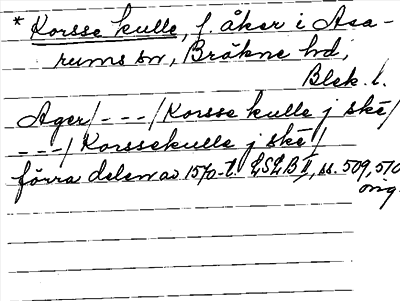 * Korsse kulle, f. åker i Asa-
rums sn, Bräkne hd,
Blek. l.
Ager/---/Korsse kulle j skē/
---/Korssekulle j skē/
förra delen av 1570-t. LSLB II, ss. 509, 510
orig.